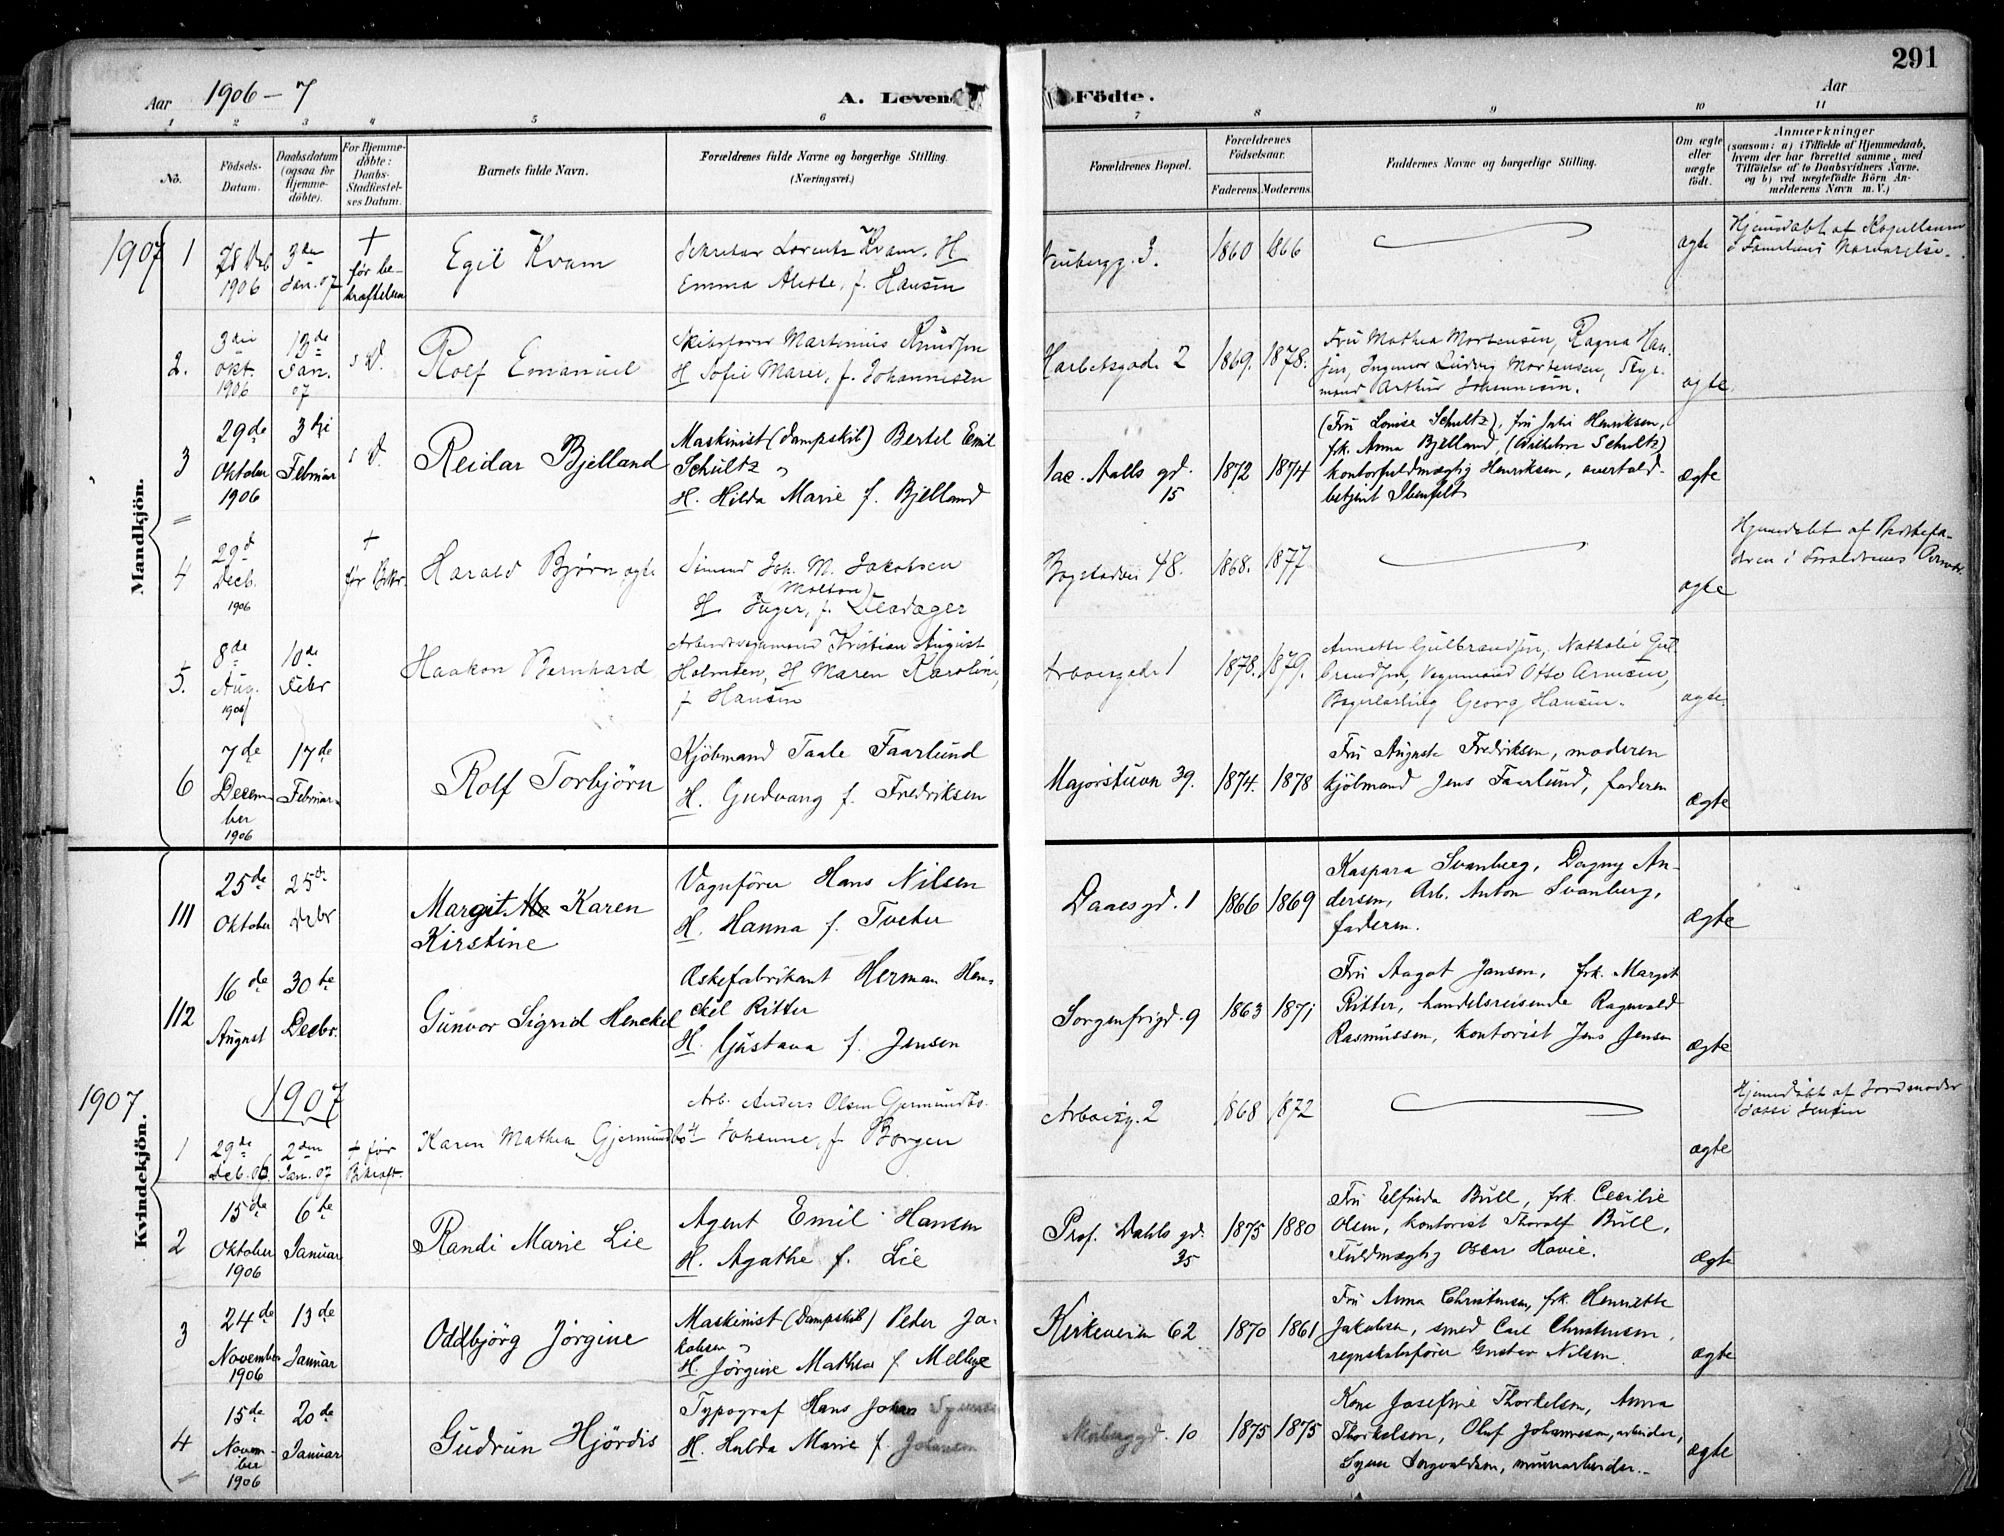 291
Aar 1906-7
A. Leven
Födte.
Aar
1 2 3 4 5 6 7 8 9 10 11
No.
Födsels-Datum.
Daabsdatum (ogsaa for Hjemmedöbte).
For Hjemmedöbte: Daabs-Stadfæstelses Datum.
Barnets fulde Navn.
Forældrenes fulde Navne og borgerlige Stilling.
(Næringsvei.)
Forældrenes Bopæl.
Forældrenes Födselsaar.
Faderens. Moderens.
Faddernes Navne og borgerlige Stilling.
Om ægte eller uægte födt.
Anmærkninger
(saasom: a) i Tilfælde af Hjemmedaab, hvem der har forrettet samme, med Tilföielse af to Daabsvidners Navne, og b) ved uægtefödte Börn Anmelderens Navn m. V.)
Mandkjön.
1907
1
28 Deb 1906
3de Jan. 07
† før bekræftelsen
Egil Kvam
Sekretær Lorentz Kvam. H
Emma Alette, f. Hansen
Neubergg. 3.
1860 1866
ægte
Hjemdøbt af
2.
3die Okt. 1906
13de Jan. 07
s D.
Rolf Emanuel
Skibsfører Martinius Knudsen
H Sofie Marie, f. Johannesen
Harbitzgade 2
1869. 1878.
Fru Mathea Mortensen, Ragna Han-
sen, Ingeniør Ludvig Mortensen, Styr-
mand Arthur Johannesen.
ægte
3
29de Oktober 1906
3die Februar
s D.
Reidar Bjelland
Maskinist (Dampskib) Bertel Emil
Schultz
H. Hilda Marie f. Bjelland
Jac. Aalls gd. 15
1872 1874
(Fru Louise Schultz), fru Julie Henriksen,
frk. Anna Bjelland, (Wilhelm Schultz)
kontorfuldmægtig Henriksen, overtold-
betjent Ibenfelt
ægte
4
29d Decb. 1906
† før Bkr.
Harald Bjørn ægte
Joh. M. Jakobsen
H Inger, f.
Bogstadvei 48.
1868. 1877
ægte
Hjemmedøbt af
dren i Forældrenes
5.
8de Aug. 1906
10de Febr
Haakon Bernhard
Kristian August
Holmsen, H Maren Karoline,
f Hansen
Arbeiergade 1
1878. 1879.
Annette Gulbrandsen, Nathalie Gul-
brandsen, Vognmand Otto Arnesen,
Bagerlærling Georg Hansen.
ægte.
6
7de December 1906
17de Februar
Rolf Torbjörn
Kjöbmand Taale Faarlund
H. Gudvang f. Fredriksen
Majorstuvn 39.
1874. 1878
Fru Augusta Fredriksen, moderen
kjöbmand Jens Faarlund, faderen
ægte
Kvindekjön.
111
25de Oktober
25d Debr
Margit Karen
Kirstine
Vognförer Hans Nilsen
H. Hanna f. Tveter
Daaesgd. 1
1866 1869
Kaspara Svanberg, Dagny An-
dersen, Arb. Anton Svanberg,
faderen.
ægte
112
16de August
30te Decbr.
Gunvor Sigrid Henckel
Æskefabrikant Herman Hen-
ckel Ritter
H. Gustava f. Jensen
Sorgenfrigd. 9
1863 1871
Fru Aagot Jansen, frk. Margit
Ritter, handelsreisende Ragnvald
Rasmussen, kontorist Jens Jensen
ægte
1907
1907
1
29de Deb. 06
2den Jan. 07
† før Bkræft.
Karen Mathea Gjermundbo
Arb. Anders Olsen Gjermundbo.
H Johanne, f. Borgen
Arboisg. 2
1868 1872
ægte
Hjemdøbt af Jordmoder
Jensen
2
15de Oktober 1906
6te Januar
Randi Marie Lie
Agent Emil Hansen
H. Agathe f. Lie
Prof. Dahls gd. 35
1875 1880
Fru Elfrida Bull, frk. Cecilie
Olsen, kontorist Thoralf Bull,
Fuldmægtig Oscar Hovie.
ægte
3
24de November 1906
13de Januar
Oddbjörg Jörgine
Maskinist (Dampskib) Peder Ja-
kobsen
H. Jörgine Mathea f. Melbye
Kirkeveien 62
1870 1861
Fru Anna Christensen, frk. Henriette
Jakobsen, smed Carl Christensen,
regnskabsfører Gustav Nilsen.
ægte
4
15de November 1906
20de Januar
Gudrun Hjördis
Typograf Hans Johan
H. Hulda Marie f. Johansen
10
1875 1875
Kone Josefine Thorkelsen, Anna
Thorkelsen, Oluf Johannesen, arbeider,
Ingvaldsen, murarbeider.
ægte